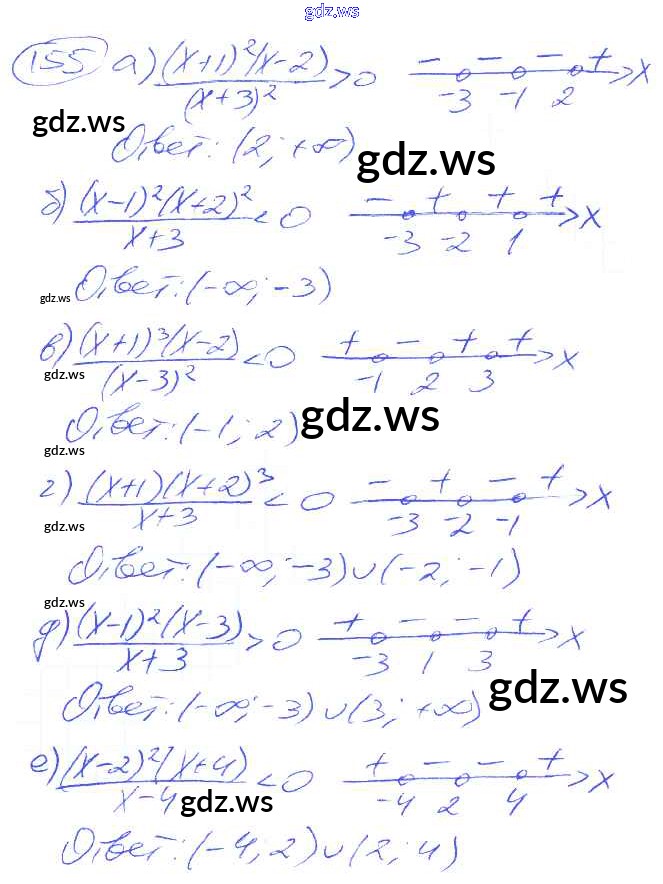 gdz.ws
155 а) (x+1)²(x-2)/(x+3)² > 0 - - - + -3 -1 2 x
gdz.ws
Ответ: (2; +∞)
gdz.ws
б) (x-1)²(x+2)²/x+3 < 0 - + + + -3 -2 1 x
gdz.ws Ответ: (-∞; -3)
в) (x+1)³(x-2)/(x-3)² < 0 + - + + -1 2 3 x
gdz.ws
Ответ: (-1; 2)
gdz.ws
gdz.ws
г) (x+1)(x+2)³/x+3 < 0 - + - + -3 -2 -1 x
gdz.ws
Ответ: (-∞; -3)∪(-2; -1)
gdz.ws
д) (x-1)²(x-3)/x+3 > 0 + - - + -3 1 3 x
gdz.ws
Ответ: (-∞; -3)∪(3; +∞)
е) (x-2)²(x+4)/x-4 < 0 + - - + -4 2 4 x
gdz.ws
Ответ: (-4; 2)∪(2; 4)